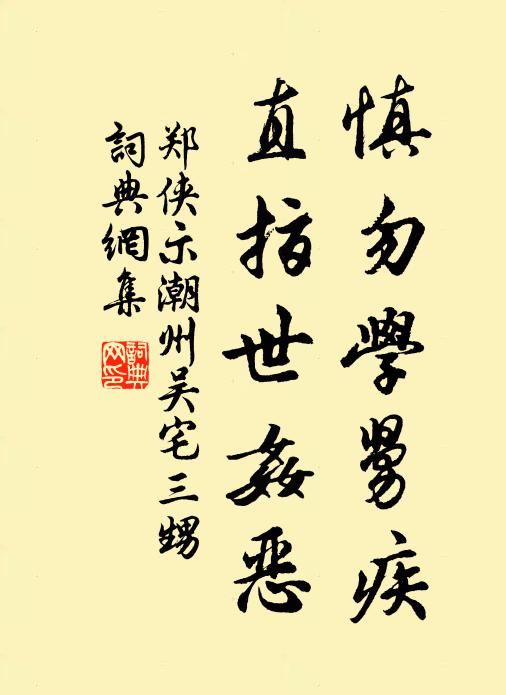 慎勿學舅疾
直指世姦惡
郑侠示潮州吴宅三甥
詞典網集
詞典
网印